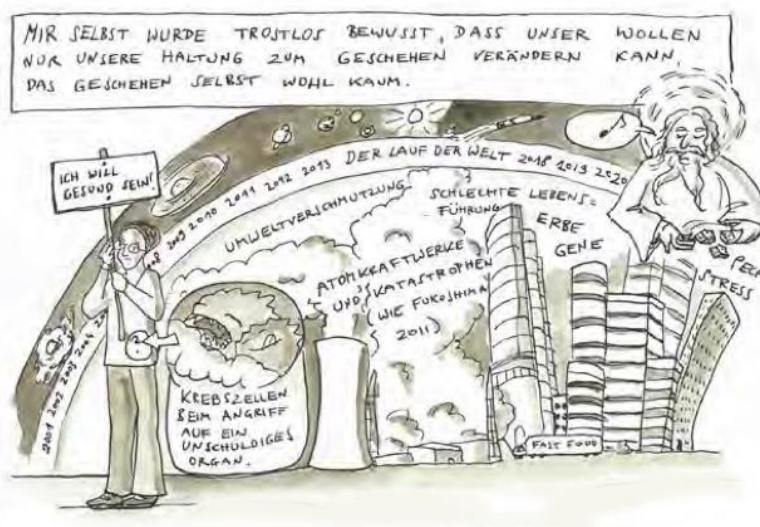 MIR SELBST WURDE TROSTLOS BEWUSST, DASS UNSER WOLLEN
NUR UNSERE HALTUNG ZUM GESCHEHEN VERÄNDERN KANN,
DAS GESCHEHEN SELBST WOHL KAUM.
ICH WILL
GESUND SEIN!
2001 2002 2003 2004
2009 2010 2011 2012 2013 DER LAUF DER WELT 2018 2019 2020
UMWELTVERSCHMUTZUNG
SCHLECHTE LEBENS=
FÜHRUNG
ERBE
GENE
PECH
STRESS
ATOMKRAFTWERKE
UND KATASTROPHEN
(WIE FUKOSHIMA
2011)
KREBSZELLEN
BEIM ANGRIFF
AUF EIN
UNSCHULDIGES
ORGAN.
FAST FOOD